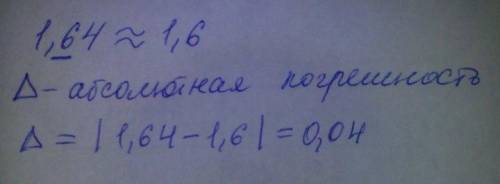 1,64 ≈ 1,6
Δ - абсолютная погрешность
Δ = | 1,64 - 1,6 | = 0,04